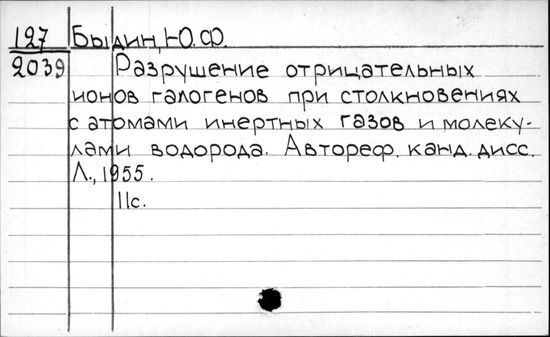 127 Быдин, Ю.Ф.
2039 Разрушение отрицательных
ионов галогенов при столкновениях
с атомами инертных газов и молеку-
лами водорода. Автореф. канд. дисс.
Л., 1955.
11с.